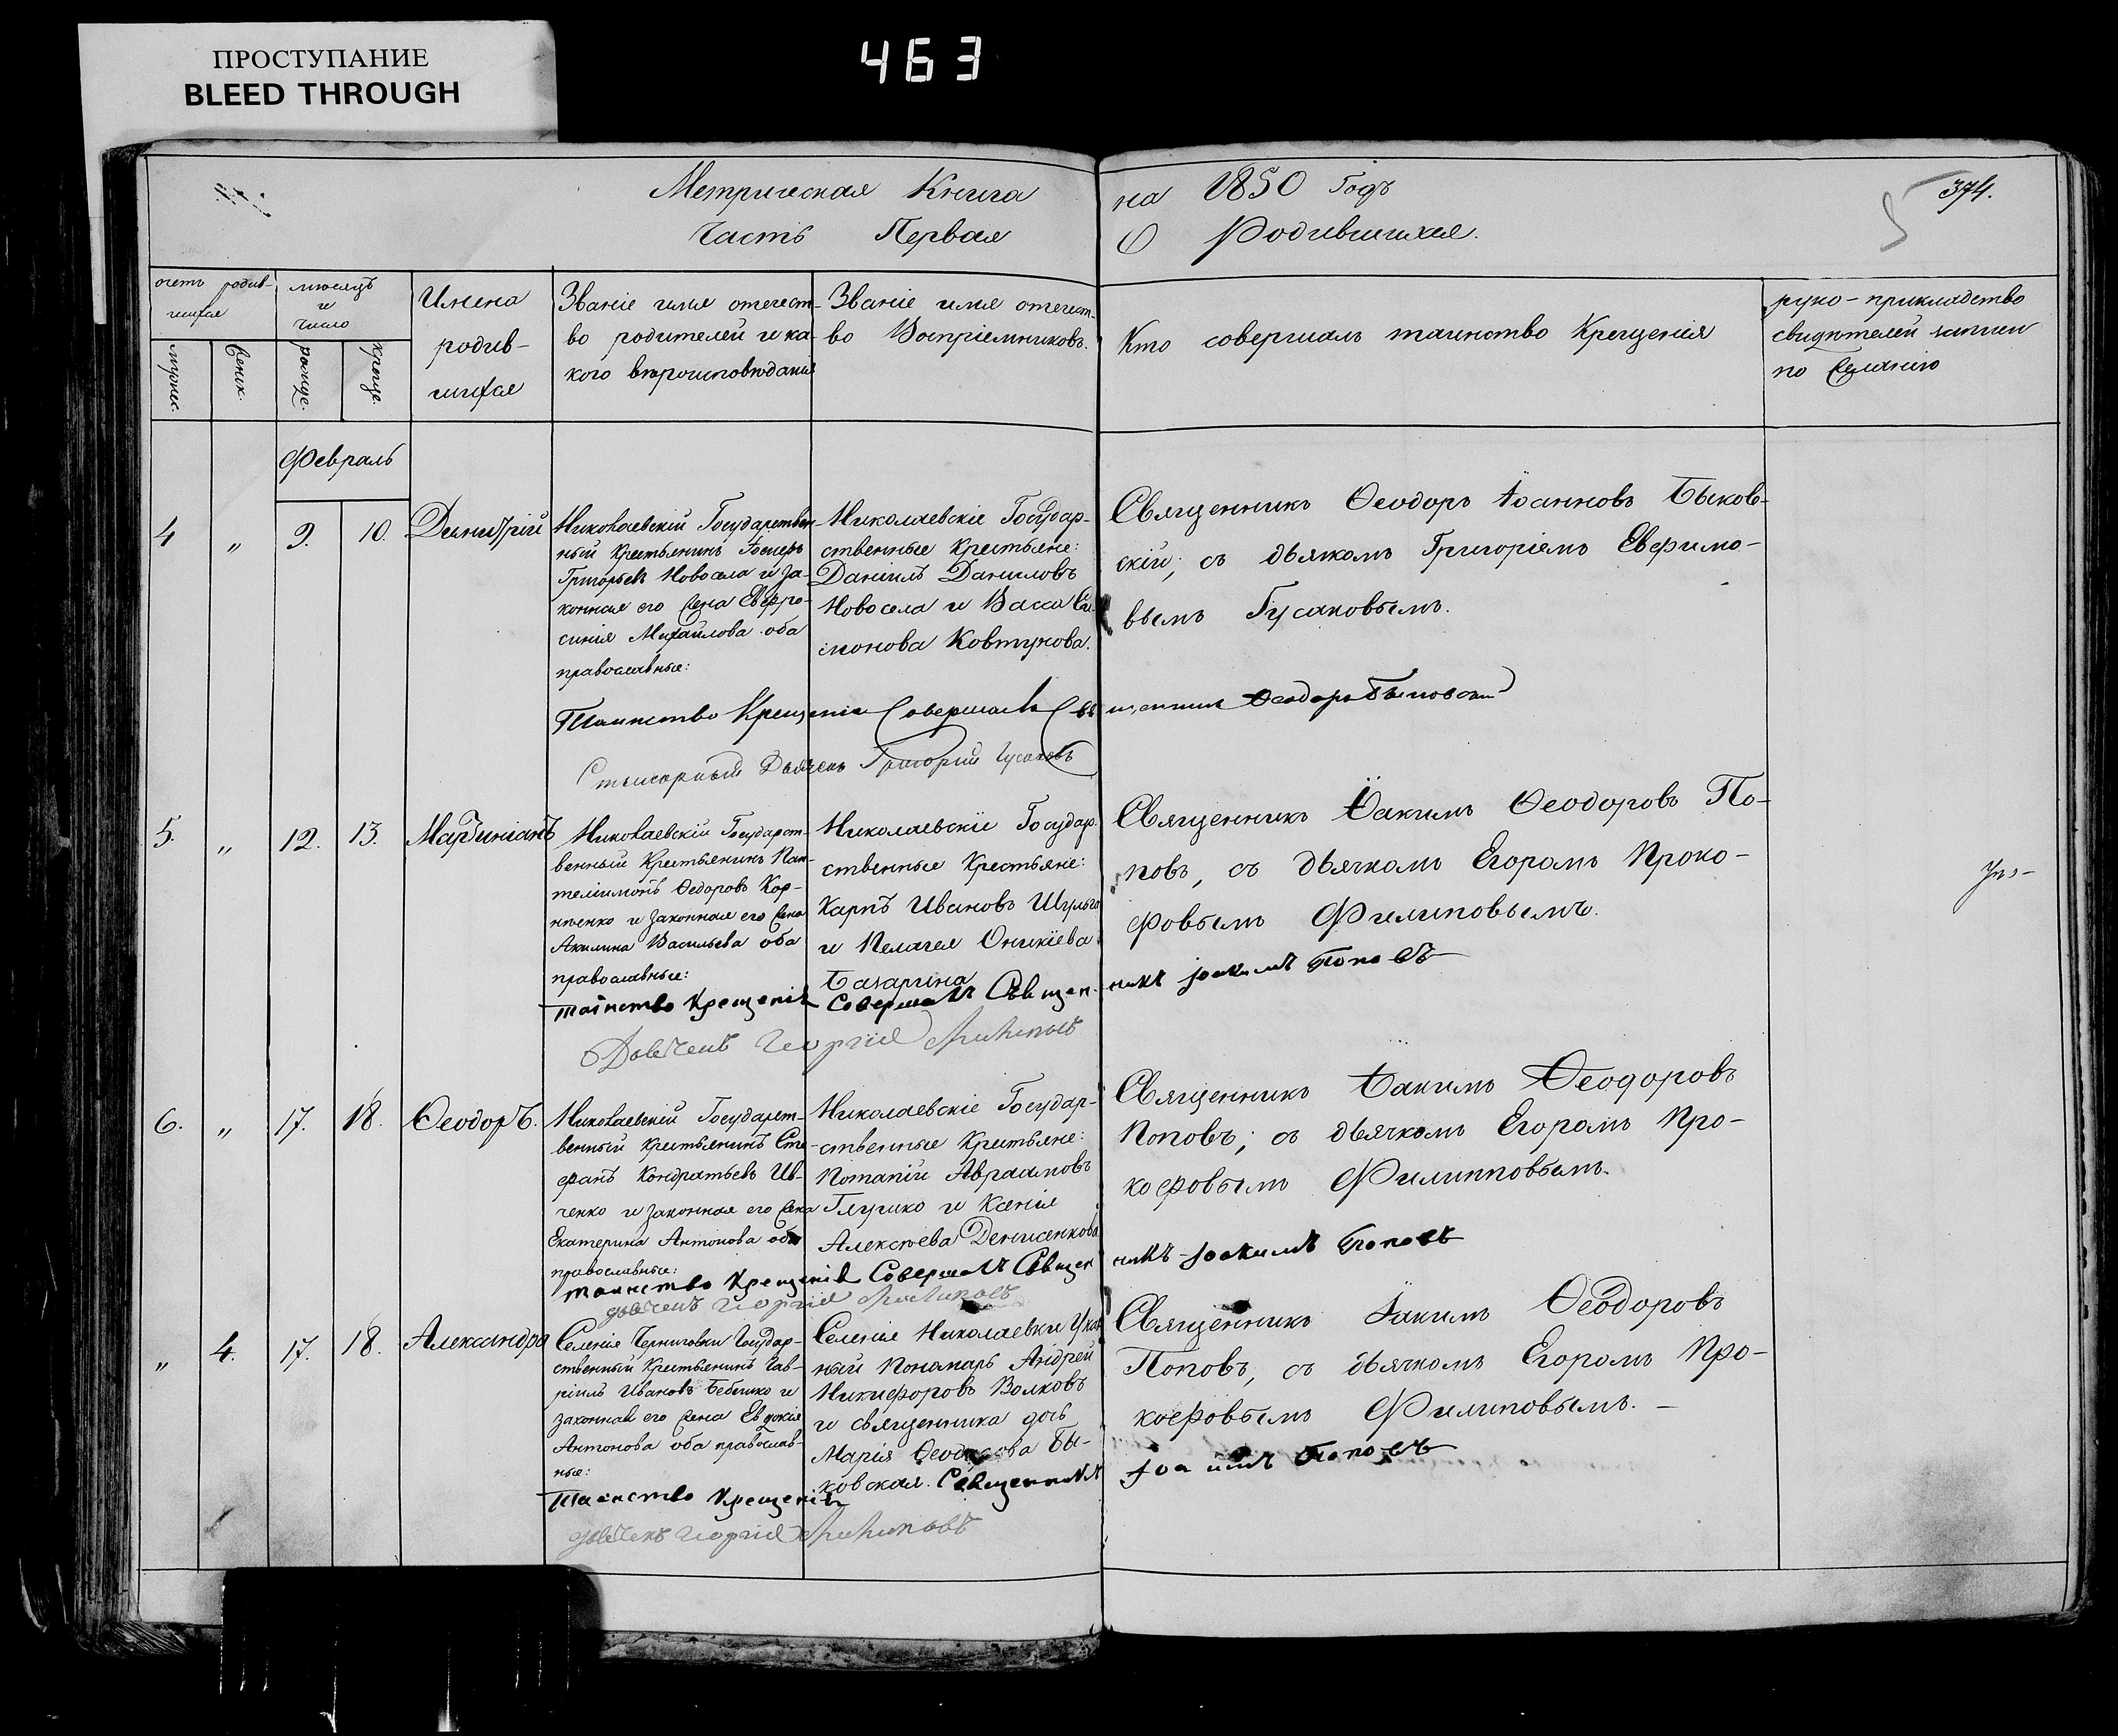 ПРОСТУПАНИЕ
BLEED THROUGH
463
Метрическая Книга на 1850 Годъ
374.
Часть Первая О Родившихся.
счетъ родив-
шихся
мѣсяцъ
и
число
Имена
родив-
шихся
Званіе имя отечест-
во родителей и ка-
кого вѣроисповѣданія
Званіе имя отечест-
во Воспріемниковъ.
Кто совершалъ таинство Крещенія
руко-прикладство
свидѣтелей записи
по Желанію
мужск.
Женск.
рожде.
креще.
Февраль
4 " 9. 10. Димитрій
Николаевскій Государствен-
ный Крестьянинъ
Григорьевъ Новосела и за-
конная его Жена Евфро-
синія Михайлова оба
православные:
Николаевскіе Государ-
ственные Крестьяне:
Даніилъ Даниловъ
Новосела и Васса Си-
монова Ковтунова.
Священникъ Ѳеодоръ Іоанновъ Быков-
скій; съ дьякомъ Григоріемъ Евфимо-
вымъ Гусаковымъ.
Таинство Крещенія Совершалъ Священникъ Ѳеодоръ Быковскій
Дьячекъ Григорій Гусаковъ
5. " 12. 13. Мартиніанъ
Николаевскій Государст-
венный Крестьянинъ Пан-
телімонъ Ѳедоровъ Кор-
нѣенко и законная его Жена
Акилина Васильева оба
православные:
Николаевскіе Государ-
ственные Крестьяне:
Карпъ Ивановъ Шульга
и Пелагея Оникіева
Базарина
Священникъ Іакимъ Ѳеодоровъ По-
повъ, съ дьячкомъ Егоромъ Проко-
фовымъ Филиповымъ.
таинство Крещенія Совершалъ Священникъ Іоакимъ Поповъ
Дьячекъ Георгій Филиповъ
6. " 17. 18. Ѳеодоръ.
Николаевскій Государст-
венный Крестьянинъ Сте-
фанъ Кондратьевъ Ив-
ченко и законная его Жена
Екатерина Антонова оба
православные:
Николаевскіе Государ-
ственные Крестьяне:
Потапій Авраамовъ
Глушко и Ксенія
Алексѣева Денисенкова
Священникъ Іакимъ Ѳеодоровъ
Поповъ; съ дьячкомъ Егоромъ Про-
кофовымъ Филипповымъ.
таинство Крещенія Совершалъ Священникъ Іоакимъ Поповъ
дьячекъ Георгій Филиповъ
" 4. 17. 18. Александра
Селенія Черниговки Государ-
ственный Крестьянинъ Гав-
ріилъ Ивановъ Бебешко и
законная его Жена Евдокія
Антонова оба православ-
ные:
Селенія Николаевки
Пономарь Андрей
Никифоровъ Волковъ
и священника дочь
Марія Ѳеодорова Бы-
ковская.
Священникъ Іакимъ Ѳеодоровъ
Поповъ, съ дьячкомъ Егоромъ Про-
кофовымъ Филиповымъ.
Таинство Крещенія Священникъ Іоакимъ Поповъ
дьячекъ Георгій Филиповъ